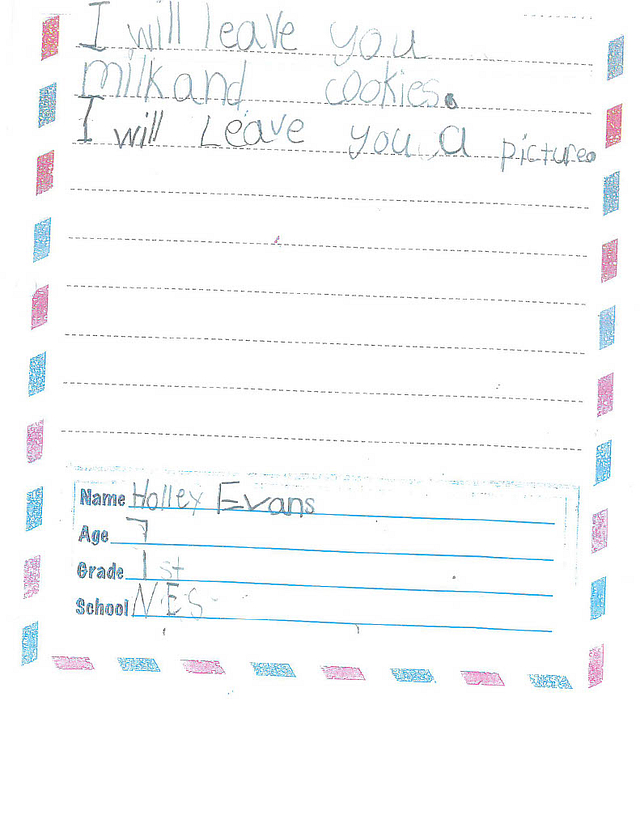 I will leave you
milk and cookies.
I will Leave you a picture.
Name Holley Evans
Age 7
Grade 1st
School N.E.S